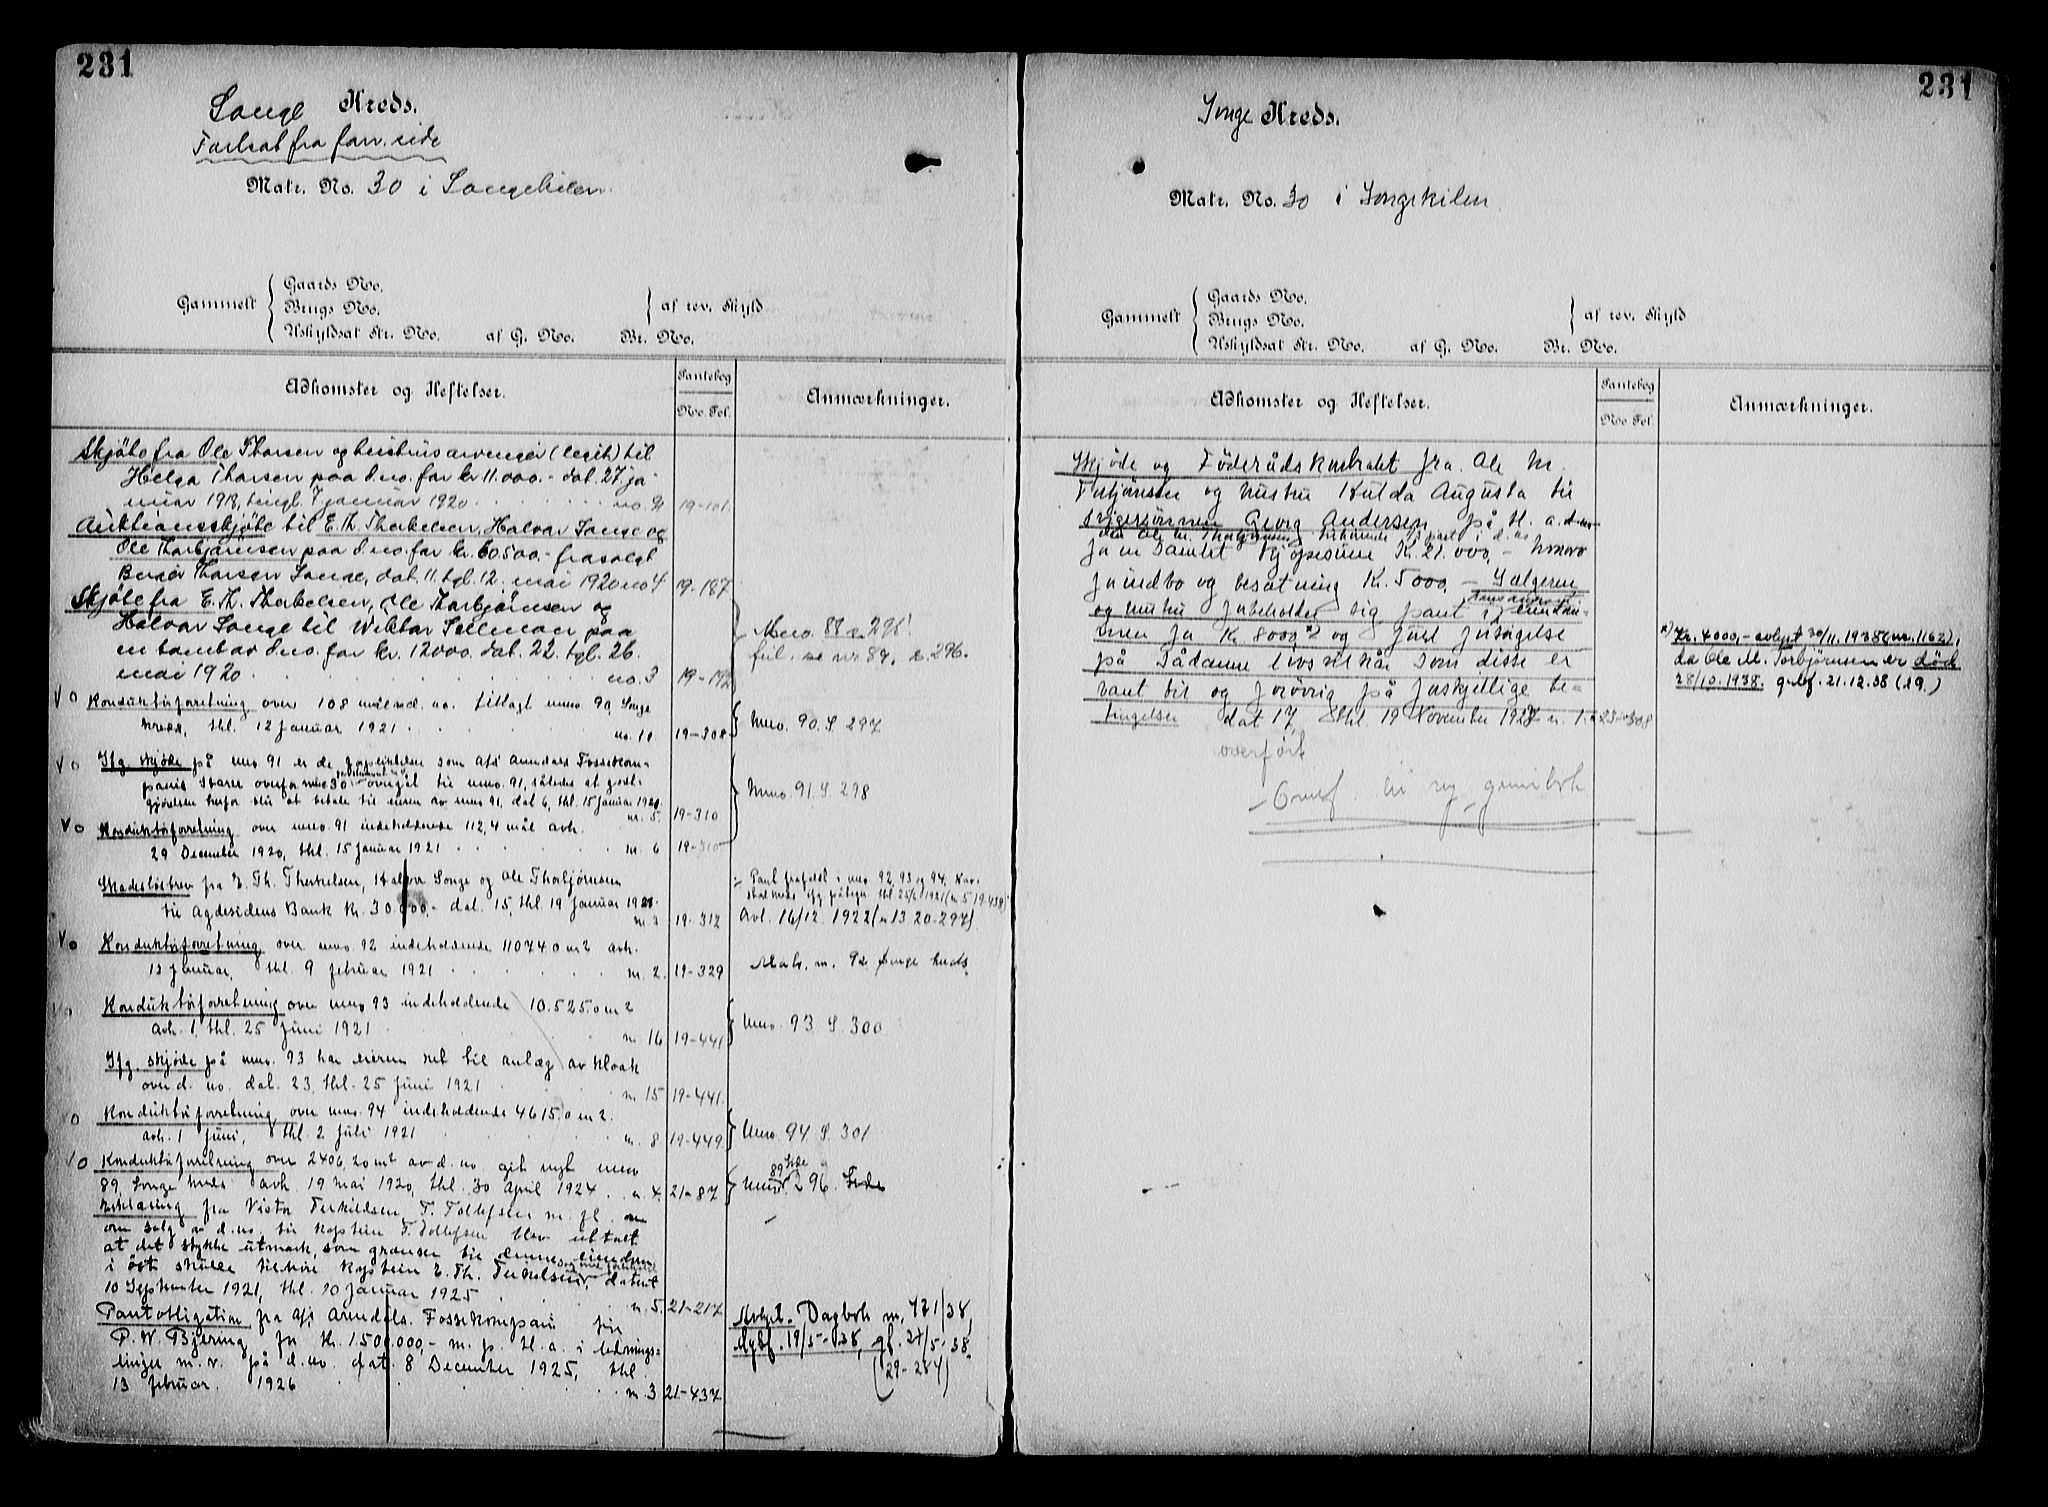 231
Songe Kreds.
Fortsat fra forr. side
Matr. No. 30 i Songekilen
Gammelt
Gaards No.
Brugs No.
Uskyldsat Str. No. af G. No. Br. No.
af rev. Skyld
Adkomster og Heftelser.
Pantebog
No. Fol.
Anmærkninger.
Skjöte fra Ole Thorsen og hustrus arvinger (legit) til
Helga Thorsen paa d. no. for kr. 11.000.- dat. 27 ja-
nuar 1918, tingl. 7 januar 1920 no 9 19-101
Auktionsskjöte til E. Th. Therkelsen, Halvor Songe og
Ole Thorbjörnsen paa d. no. for kr. 60500.- frasolgt
Thorsen Songe, dat. 11. tgl. 12. mai 1920 no 4 19-187
Skjöte fra E. Th. Therkelsen, Ole Thorbjörnsen og
Halvor Songe til Viktor paa
en tomt av d. no. for kr. 12000. dat. 22. tgl. 26.
mai 1920 no. 3 19-192
Mno. 88 s. 295!
no 89, s. 296.
Konduktörforretning over 108 mål ud. no. tillagt mno 90, Songe
kreds, thl. 12 Januar 1921 no. 11 19-308
Mno. 90. S. 297
Ifg. skjöde på mno 91 er de forpliktelser som A/S Arendals Fossekom-
pani har overfor mno 30 overgåt til mno. 91, således at godt-
gjörelsen herfor blir at betale til eieren av mno 91, dat 6, thl. 15 Januar 1921
nr. 5. 19-310
Mno. 91. S 298
Konduktörforretning over mno. 91 indeholdende 112,4 mål avh.
29 December 1920, thl. 15 Januar 1921 nr. 6 19-310
Skadeslösbrev fra E. Th. Therkelsen, Halvor Songe og Ole Thorbjörnsen
til Agdesidens Bank Kr. 30.000,- dat. 15, thl. 19 Januar 1921
nr. 3 19-312
Pant frafaldt i mno 92, 93 og 94, Kar-
ifg påtegn thl. 25/6 1921 (nr 5 19-438)
Avl. 16/12. 1922 (nr 13 20-297)
Konduktörforretning over mno. 92 indeholdende 11074.0 m2 avh.
12 Januar, thl. 9 februar 1921 nr. 2. 19-329
Matr. nr. 92 Songe kreds
Konduktörforretning over mno 93 indeholdende 10.525.0 m2
avh. 1, thl. 25 Juni 1921 nr 16 19-441
Mno. 93. S. 300
Ifg. skjöde på mno. 93 har eieren ret til anlæg av kloak
over d. no. dat. 23, thl. 25 Juni 1921 nr 15 19-441.
Konduktörforretning over mno. 94 indeholdende 4615.0 m2.
avh. 1 Juni, thl. 2 Juli 1921 nr. 8 19-449
Mno. 94 S. 301
Konduktörforretning over 2406,20 m2 av d. no git nyt mno
89, Songe kreds avh. 19 mai 1920, thl. 30 April 1924 nr. 4. 21-87
89 Side
Mno. 296. Side
Erklæring fra Victor Terkildsen, T. Tollefsen m. fl. om
om salg av d. no. til kaptein T. Tollefsen blev uttalt
at det stykke utmark, som grænser til denne eiendom
i öst skulle tilhöre kaptein E. Th. Terkelsen, datert
10 September 1921, thl. 10 Januar 1925 nr. 5. 21-217
Pantobligation fra A/S Arendals Fossekompani til
P. W. Bjering for Kr. 1.500.000,- m. p. H. a. i lednings-
linjer m. v. på d. no. dat. 8 December 1925, thl.
13 februar 1926 nr. 3 21-437
Avlyst. Dagbok nr. 421/38,
dgbf. 19/5-38, gf. 27/5-38.
(29-284)
231
Songe Kreds.
Matr. No. 30 i Songekilen
Gammelt
Gaards No.
Brugs No.
Uskyldsat Str. No. af G. No. Br. No.
af rev. Skyld
Adkomster og Heftelser.
Pantebog
No. Fol.
Anmærkninger.
Skjöde og Föderådskontrakt fra Ole M.
Torbjörnsen og hustru Hulda Augusta til
svigersönnen Georg Andersen på H. a. d. no
den Ole M. Thorbjörnsen tilhörende part i d. no
for en samlet kjöpesum Kr. 21.000,- hvorav
for indbo og besætning Kr. 5000,- Sælgeren
og hustru forbeholder sig pant i eiendom-
men for Kr 8000 x) og fuld forsörgelse
på sådanne livsvilkår som disse er
vant til og forövrig på forskjellige be-
tingelser dat 17, thl 19 November 1927 nr. 1. 23-308
overfört
Overf. til ny grunnbok
x) Kr. 4000,- avlyst 30/11. 1938 (nr. 1162),
da Ole M. Torbjörnsen er död
28/10. 1938. gebf. 21.12.38 (19.)